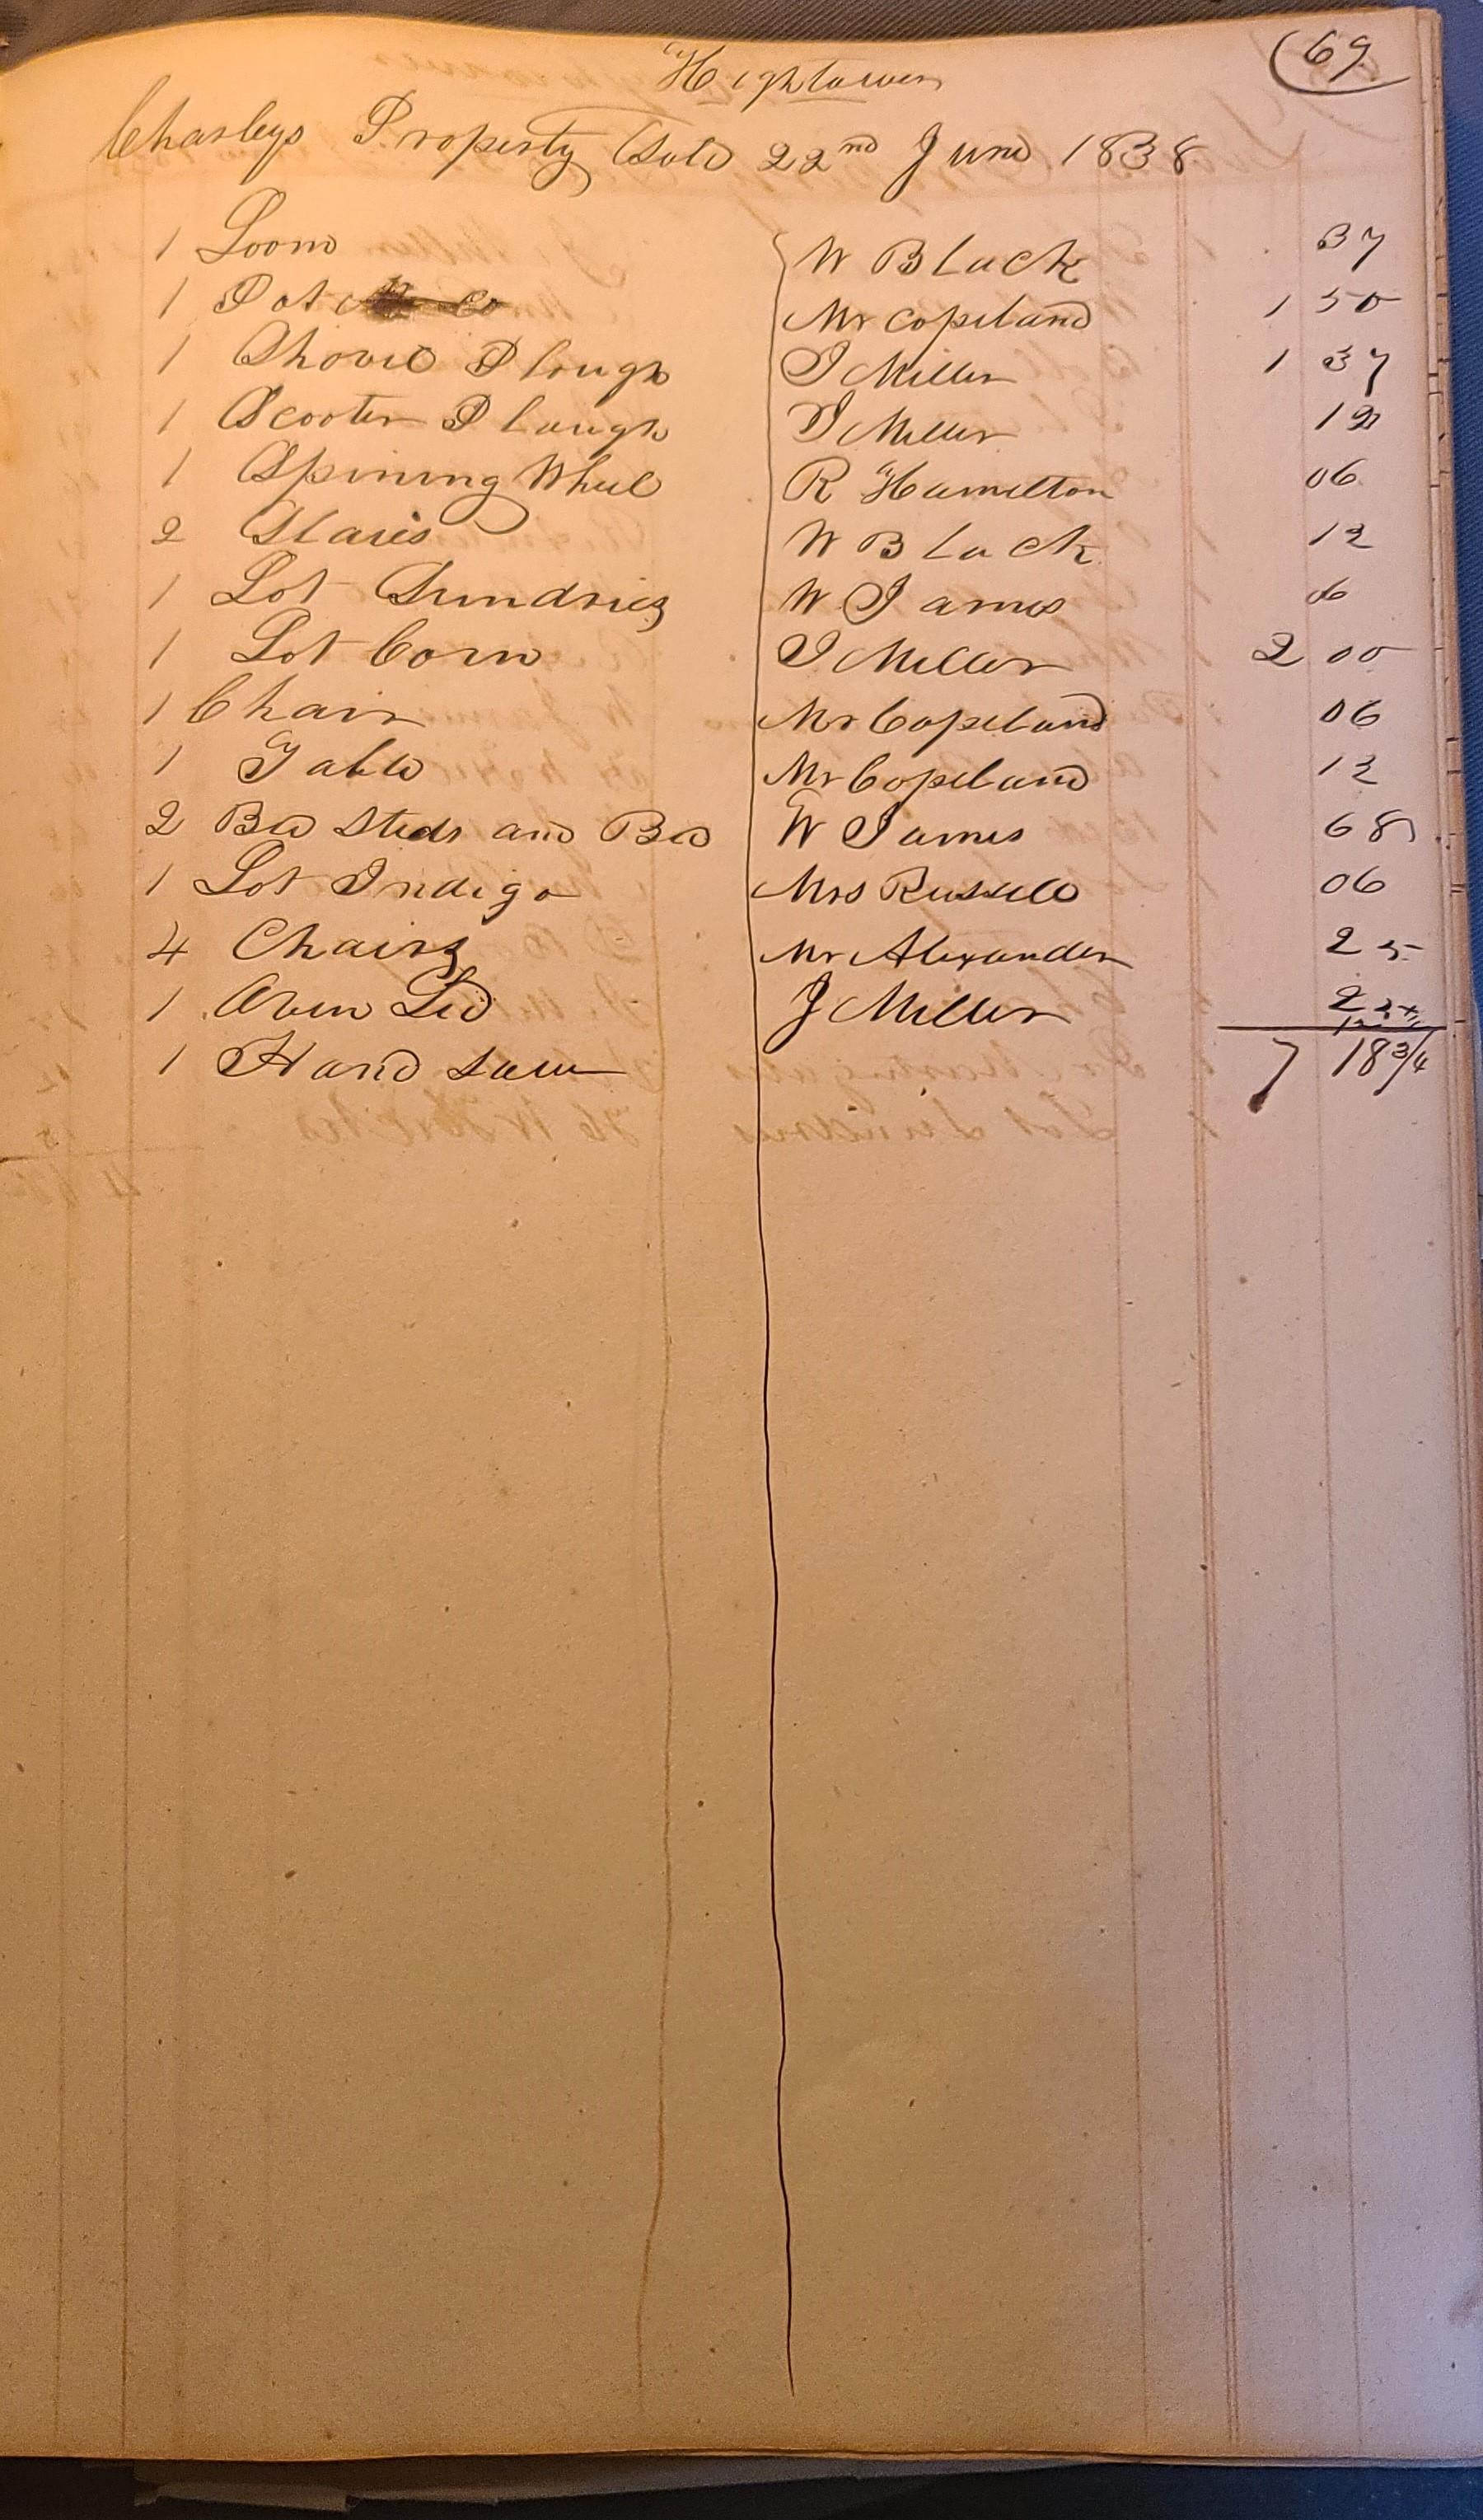 69
Hightower
Charleys Property Sold 22nd June 1838
1 Loom W Black 37
1 Pot Mr Copeland 1 50
1 Shovel Plough J Miller 1 37
1 Scooter Plough J Miller 12
1 Spining Wheel R Hamilton 06
2 Slaies W Black 12
1 Lot Sundries W James 06
1 Lot Corn J Miller 2 00
1 Chair Mr Copeland 06
1 Table Mr Copeland 12
2 Bed Steds and Bed W James 68
1 Lot Indigo Mrs Russell 06
4 Chairs Mr Alexander 25
1 Oven Led J Miller 25
1 Hand Saw 7 18 3/4